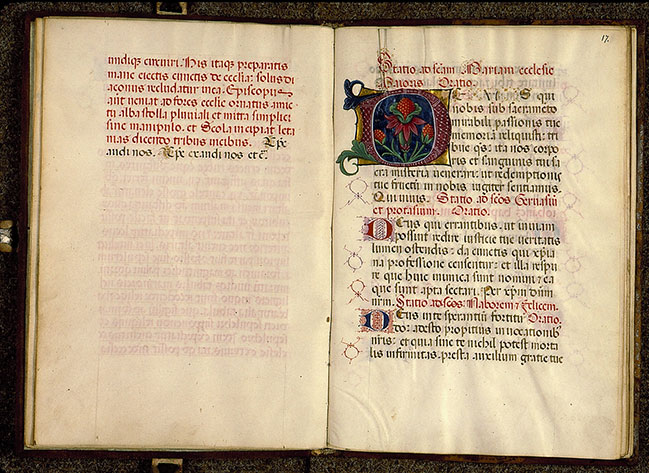 undiq; circuiri. His itaq; preparatis
mane eiectis cunctis de ecclia: solus di
aconus recludatur in ea. Episcopus
aut veniat ad fores ecclie ornatus amic
tu alba stolla pluviali et mitra simplici
sine manipulo. et Scola incipiat leta
nias dicendo tribus vicibus. Xpe
audi nos. Xpe exaudi nos et c̄.
17.
Statio ad scam Mariam ecclesie
Maioris Oratio.
DEUS qui
nobis sub sacrameto
mirabili passionis tue
memoria reliquisti: tri
bue q̄s: ita nos corpo
ris et sanguinis tui sa
cra misteria venerari: ut redemptionis
tue fructu in nobis iugiter sentiamus.
Qui vivis. Statio ad scos Gervasiu
et protasium. Oratio.
Deus qui errantibus. ut in viam
possint redire iusticie tue veritatis
lumen ostendis: da cunctis qui xp̄ia
na professione censentur: et illa respu
re que huic inimica sunt nomini: et ea
que sunt apta sectari. Per xp̄m dn̄m
nr̄m. Statio ad scos: Naborem et Felicem.
Deus in te sperantiu fortitu Oratio
do: adesto propitius invocationib
nr̄is: et quia sine te nichil potest morta
lis infirmitas. presta auxilium gratie tue